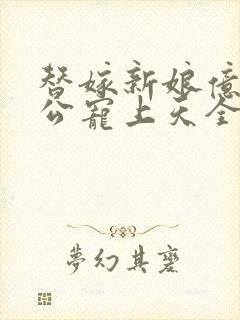 替嫁新娘億
公寵上天全
夢幻其蹇